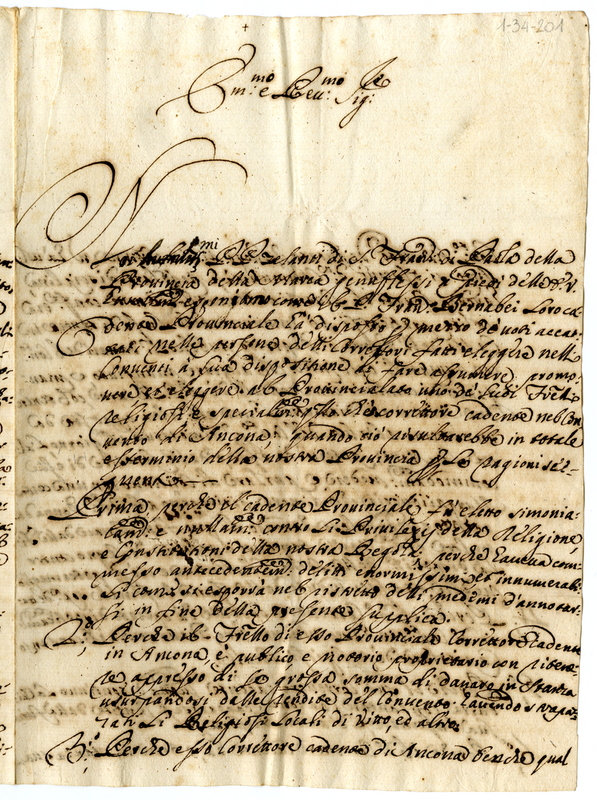 1-34-201
Em:mo e Reu:mo Sig:re
Noi humili:mi P.P. Zelanti di S. Fran:co di Paola della
Provincia della Marca genuflessi a piedi dell' E. V.
espongono come il P. Fran:co Bernabei loro ca-
dente Provinciale hà disposto p mezzo de voti accap-
nelle persone delli Correttori fatti eleggere nelli
Conventi a sua dispositione di fare promo-
vere et eleggere al Provincialato uno de suoi Frelli
religiosi e specialm:te q:llo che correttore cadente nel Con-
vento di Ancona; quando ciò risultarebbe in totale
esterminio della nostra Provincia p le ragioni se-
guenti
Prima perche il cadente Provinciale fù eletto simonia-
cam:te e nullam:te contro li Privileggi della Religione,
e Constitutioni della nostra Regola; perche haveva com-
messo antecedentem:te delitti enormissimi, et innumerabi-
li come si esporrà nel ristretto delli medemi d'annotar-
si in fine della presente supplica.
2: Perche il Frello di esso Provinciale Correttore Cadente
in Ancona, è publico e notorio proprietario con ritene-
re appresso di se grossa somma di danaro in stanza
usurpandosi dalle rendite del Convento
li Religiosi locali di vitto, ed altro.
3: Perche esso Correttore cadente di Ancona benche qual